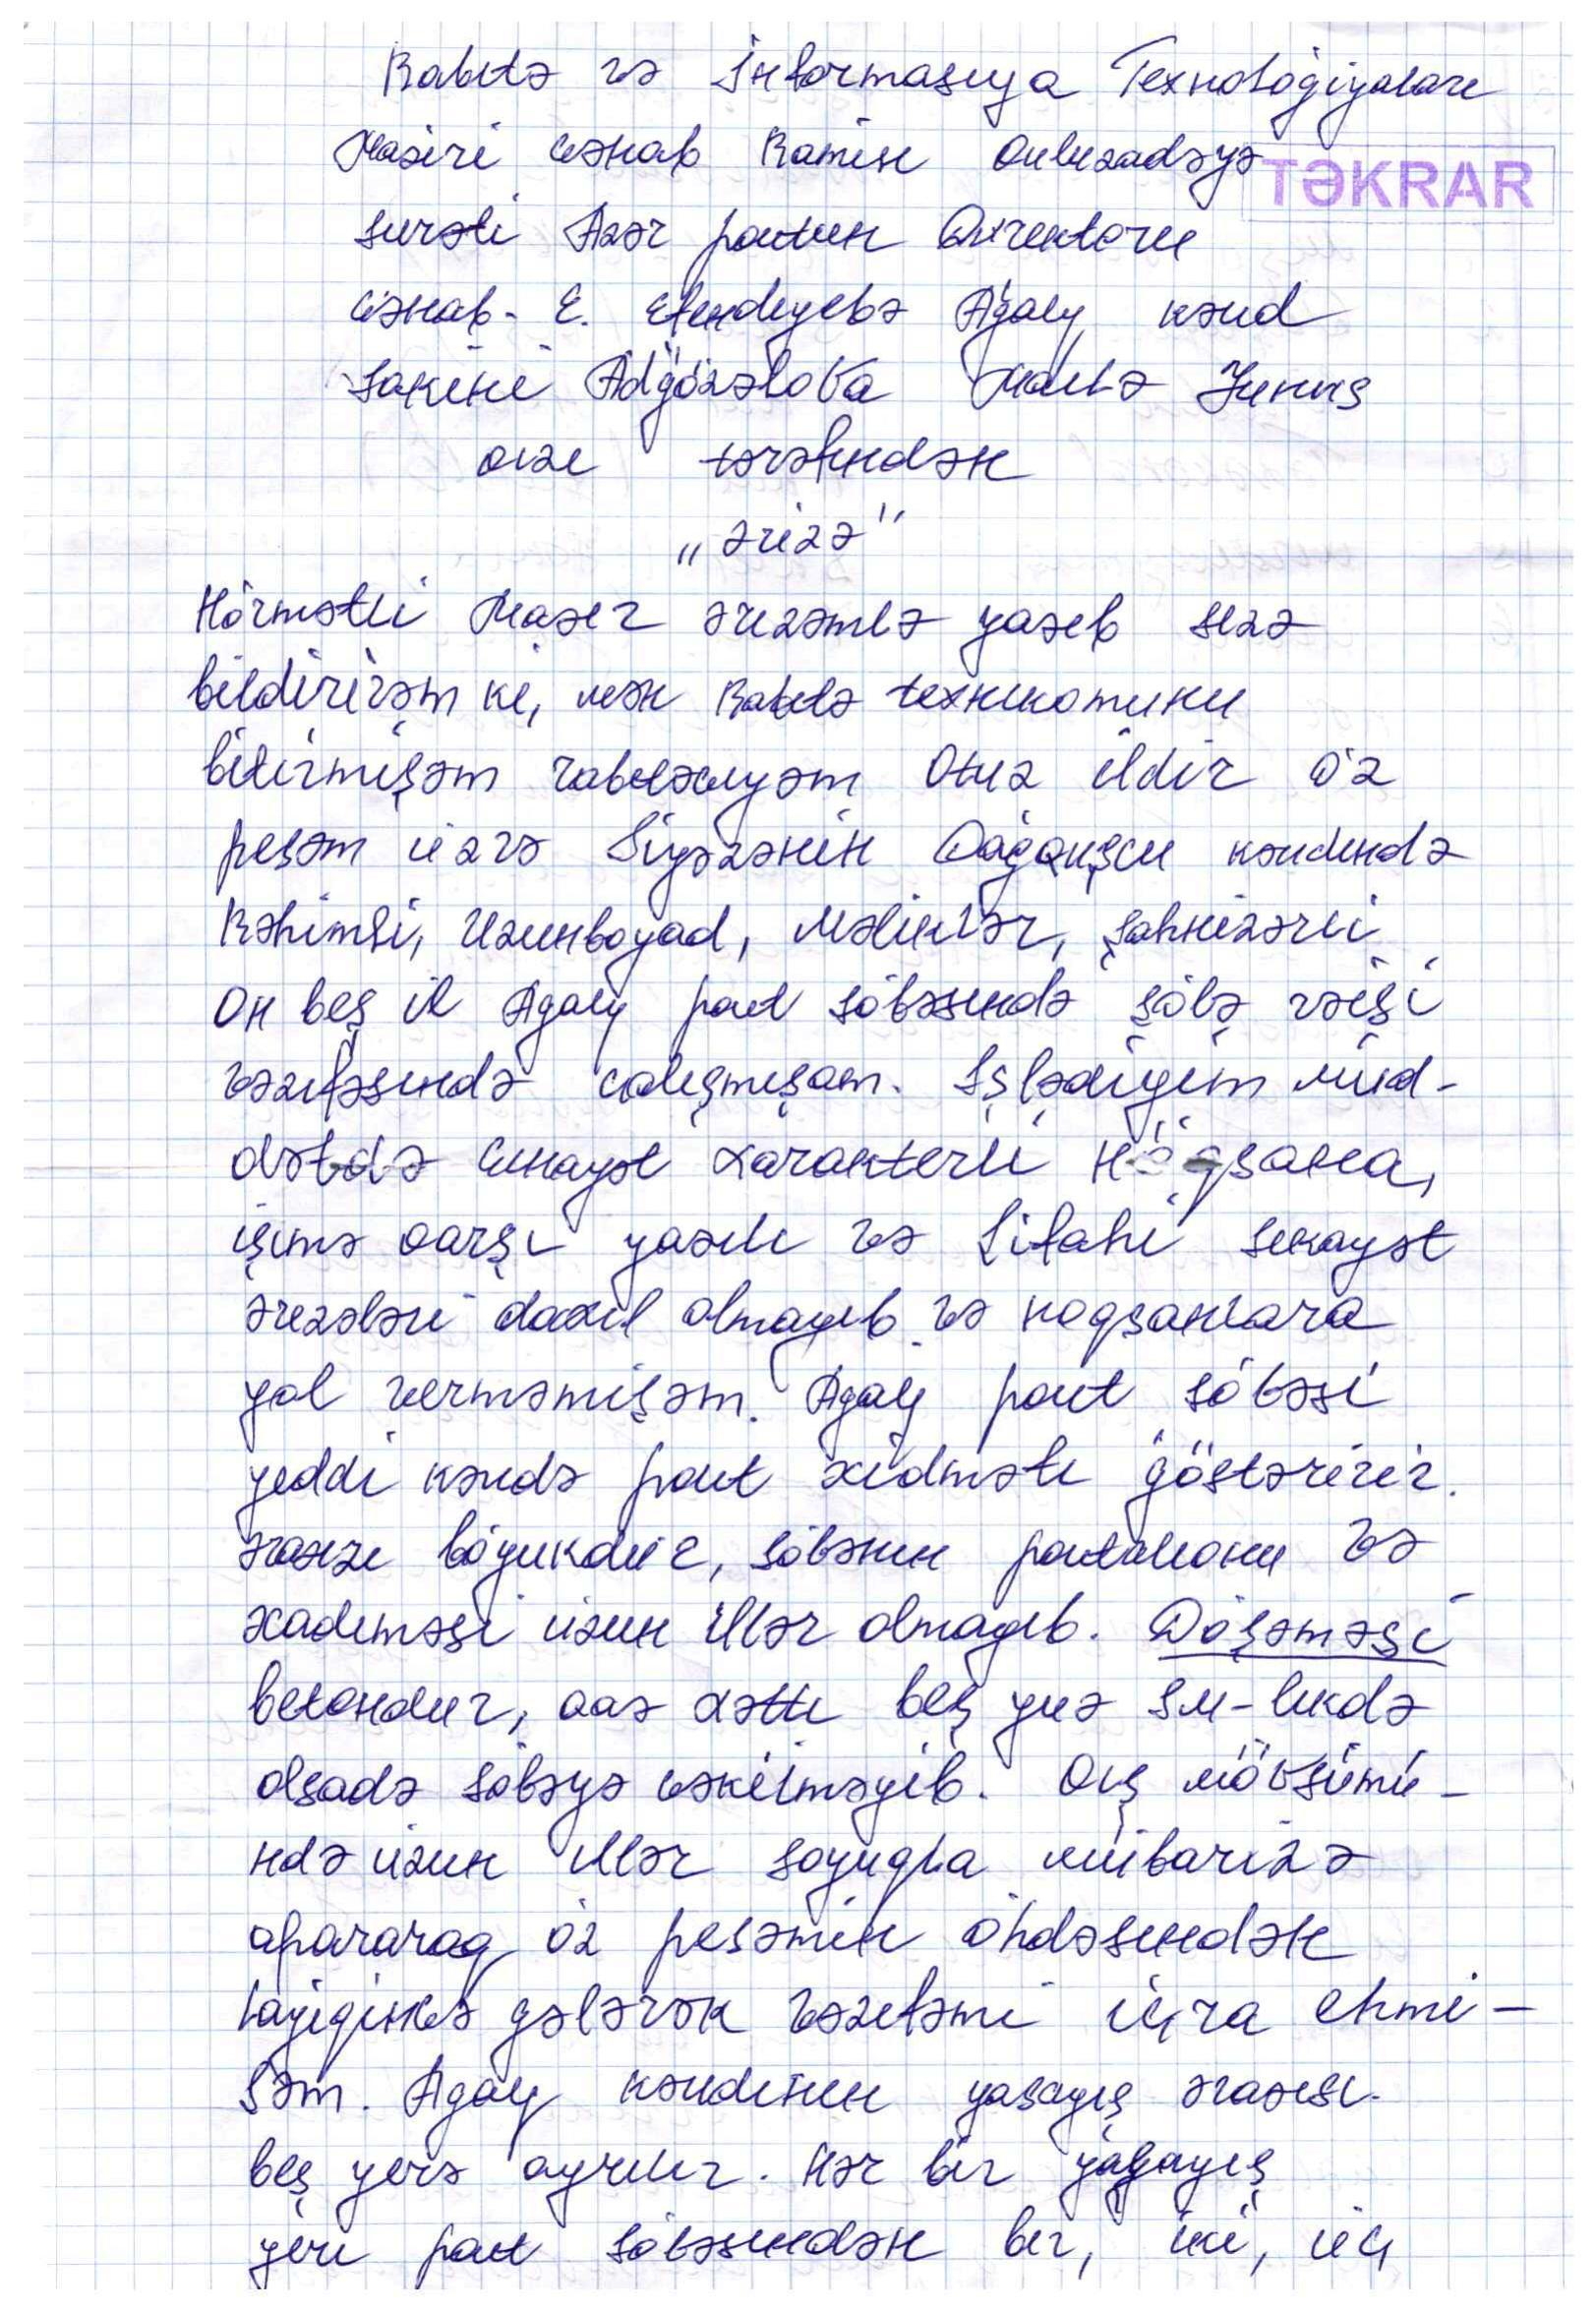 Rabitə və İnformasiya Texnologiyaları
Naziri cənab Ramin Quluzadəyə
TƏKRAR
surəti Azər poçtun Direktoru
cənab. E. Efendiyevə Ağalıq kənd
sakini Adgözəlova Mailə Yunus
qızı tərəfindən
„ərizə"
Hörmətli Nazir ərizəmlə yazıb sizə
bildirirəm ki, mən Rabitə texnikomunu
bitirmişəm rabitəçiyəm otuz ildir öz
peşəm üzrə Siyəzənin Dağquşçu kəndində
Rəhimli, Uzunboyad, Məliklər, Şahnizərli
on beş il Agalıq poçt şöbəsində şöbə rəisi
vəzifəsində calışmışam. İşlədiyim müd-
dətdə cinayət xarakterli nöqsana,
işimə qarşı yazılı və şifahi şikayət
ərizələri daxil olmayıb və noqsanlara
yol verməmişəm. Agalıq poçt şöbəsi
yeddi kəndə poçt xidməti göstəririr.
ərazi böyukdür, şöbənin poctalionu və
xadiməsi uzun illər olmayıb. Döşəməsi
betondur, qaz xətti beş yuz sm-likdə
olsada şöbəyə cəkilməyib. Qış mövsümü-
ndə uzun illər soyuqla mübarizə
apararaq öz peşəmin öhdəsindən
layiqincə gələrək vəzifəmi icra etmi-
şəm. Agalıq kəndinin yaşayış ərazisi.
beş yerə ayrılır. Hər bir yaşayış
yeri poçt şöbəsindən bir, iki, üç